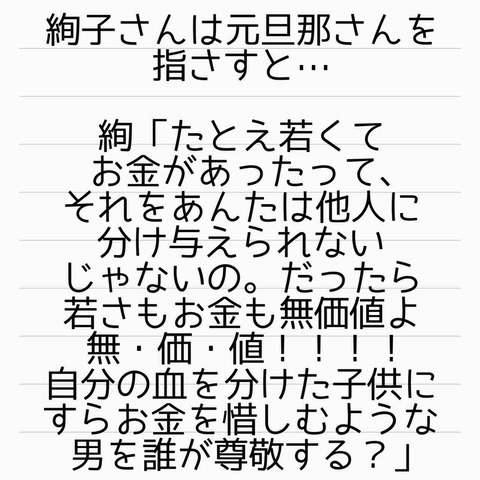 絢子さんは元旦那さんを
指さすと…
絢「たとえ若くて
お金があったって、
それをあんたは他人に
分け与えられない
じゃないの。だったら
若さもお金も無価値よ
無・価・値！！！！
自分の血を分けた子供に
すらお金を惜しむような
男を誰が尊敬する？」